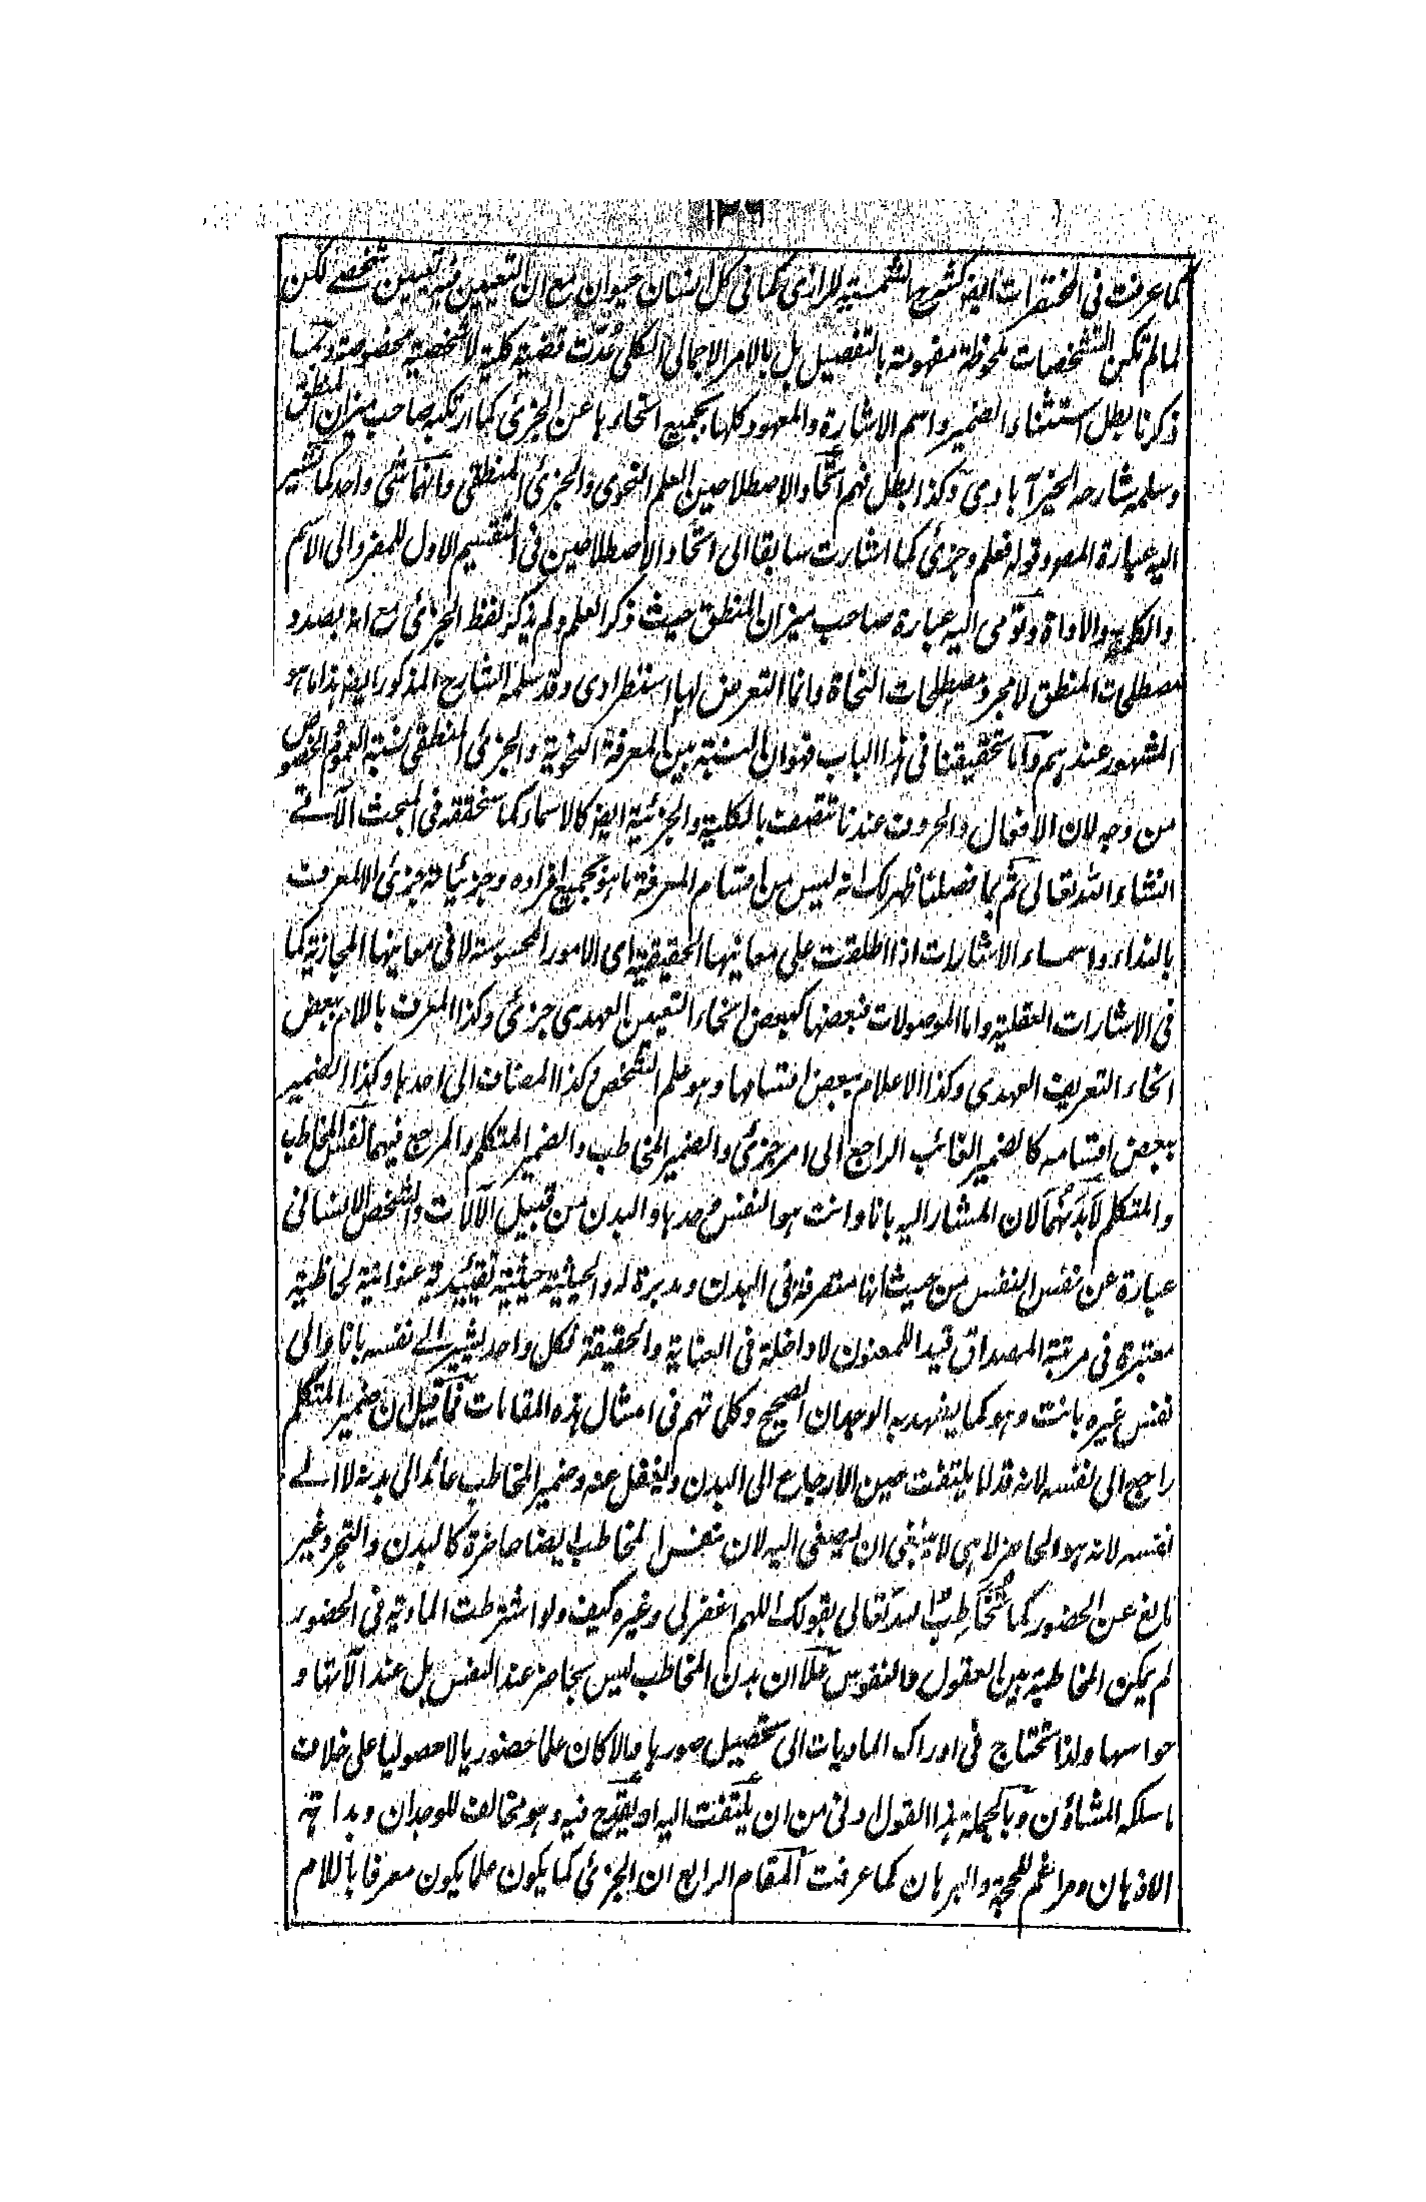 ١٢٦
كما عرفت في المختصرات ايضا كشرح الشمسية للرازي كما في كل انسان حيوان مع ان التعيين فيه تعيين شخصي لكن
لما لم تكن التشخصات ملحوظة مفهومة بالتفصيل بل بالامر الاجمالي الكلي عُدّت قضية كلية لا شخصية مخصوصة وبما
ذكرنا بطل استثناء الضمير واسم الاشارة والمعهود كلها بجميع انحاءها عن الجزئي كما ارتكبه صاحب ميزان المنطق
وسلمه شارحه الخيرآبادي وكذا بطل فهم اتحاد الاصطلاحين العلم النحوي والجزئي المنطقي وانهما شئ واحد كما تشير
اليه عبارة المصـ وقوله فعلم وجزئي كما اشارت سابقا الى اتحاد الاصطلاحين في التقسيم الاول للمفرد الى الاسم
والكلمة والاداة وتومي اليه عبارة صاحب ميزان المنطق حيث ذكر العلم ولم يذكر لفظ الجزئي مع انه بصدد
مصطلحات المنطق لا مجرد مصطلحات النحاة وانما التعرض لها استطرادي وقد سلمه الشارح المذكور ايضا هذا ما هو
المشهور عندهم وآما تحقيقنا في هذا الباب فهو ان النسبة بين المعرفة النحوية والجزئي المنطقي نسبة العموم والخصوص
من وجه لان الافعال والحروف عندنا تتصف بالكلية والجزئية ايضا كالاسماء كما سنحققه في المبحث الآتي
انشاء الله تعالى ثم بما فصلنا ظهر لك انه ليس من اقسام المعرفة ما هو بجميع افراده وجزئياته جزئي الا المعرف
بالنداء واسماء الاشارات اذا اطلقت على معانيها الحقيقية اي الامور المحسوسة لا في معانيها المجازية كما
في الاشارات العقلية واما الموصولات فبعضها كبعض انحاء التعيين العهدي جزئي وكذا المعرف باللام ببعض
انحاء التعريف العهدي وكذا الاعلام ببعض اقسامها وهو علم الشخص وكذا المضاف الى احدها وكذا الضمير
ببعض اقسامه كالضمير الغائب الراجع الى امر جزئي والضمير المخاطب والضمير المتكلم والمرجع فيهما نفس المخاطب
والمتكلم لا بدنهما لان المشار اليه بانا وانت هو النفس وحدها والبدن من قبيل الآلات والشخص الانساني
عبارة عن نفس النفس من حيث انها متصرفة في البدن ومدبرة له والحيثية حيثية تقييدية عنوانية لحاظية
معتبرة في مرتبة المصداق قيدا للمعنون لا داخلة في العناية والحقيقة فكل واحد يشير الى نفسه بانا والى
نفس غيره بانت وهو كما يشهد به الوجدان الصحيح وكل تهم في امثال هذه المقامات فما قيل ان ضمير المتكلم
راجع الى نفسه لانه قد لا يلتفت حين الارجاع الى البدن ويغفل عنه وضمير المخاطب عائد الى بدنه لا الى
نفسه لانه هو الحاضر لا هي لا ينبغي ان يصغى اليه لان نفس المخاطب ايضا حاضرة كالبدن والتجرد غير
مانع عن الحضور كما تُخَاطِبُ الله تعالى بقولك اللهم اغفر لي وغيره كيف ولو اشترطت المادية في الحضور
لم يمكن المخاطبة بين العقول والنفوس علا ان بدن المخاطب ليس بحاضر عند النفس بل عند آلاتها و
حواسها ولذا تحتاج في ادراك الماديات الى تحصيل صورها والا كان علما حضوريا لا حصوليا على خلاف
ما سلكه المشاؤن وبالجملة هذا القول ادنى من ان يلتفت اليه او يقدح فيه وهو مخالف للوجدان وبداهة
الاذهان ومراغم للحجة والبرهان كما عرفت المقام الرابع ان الجزئي كما يكون علما يكون معرفا باللام